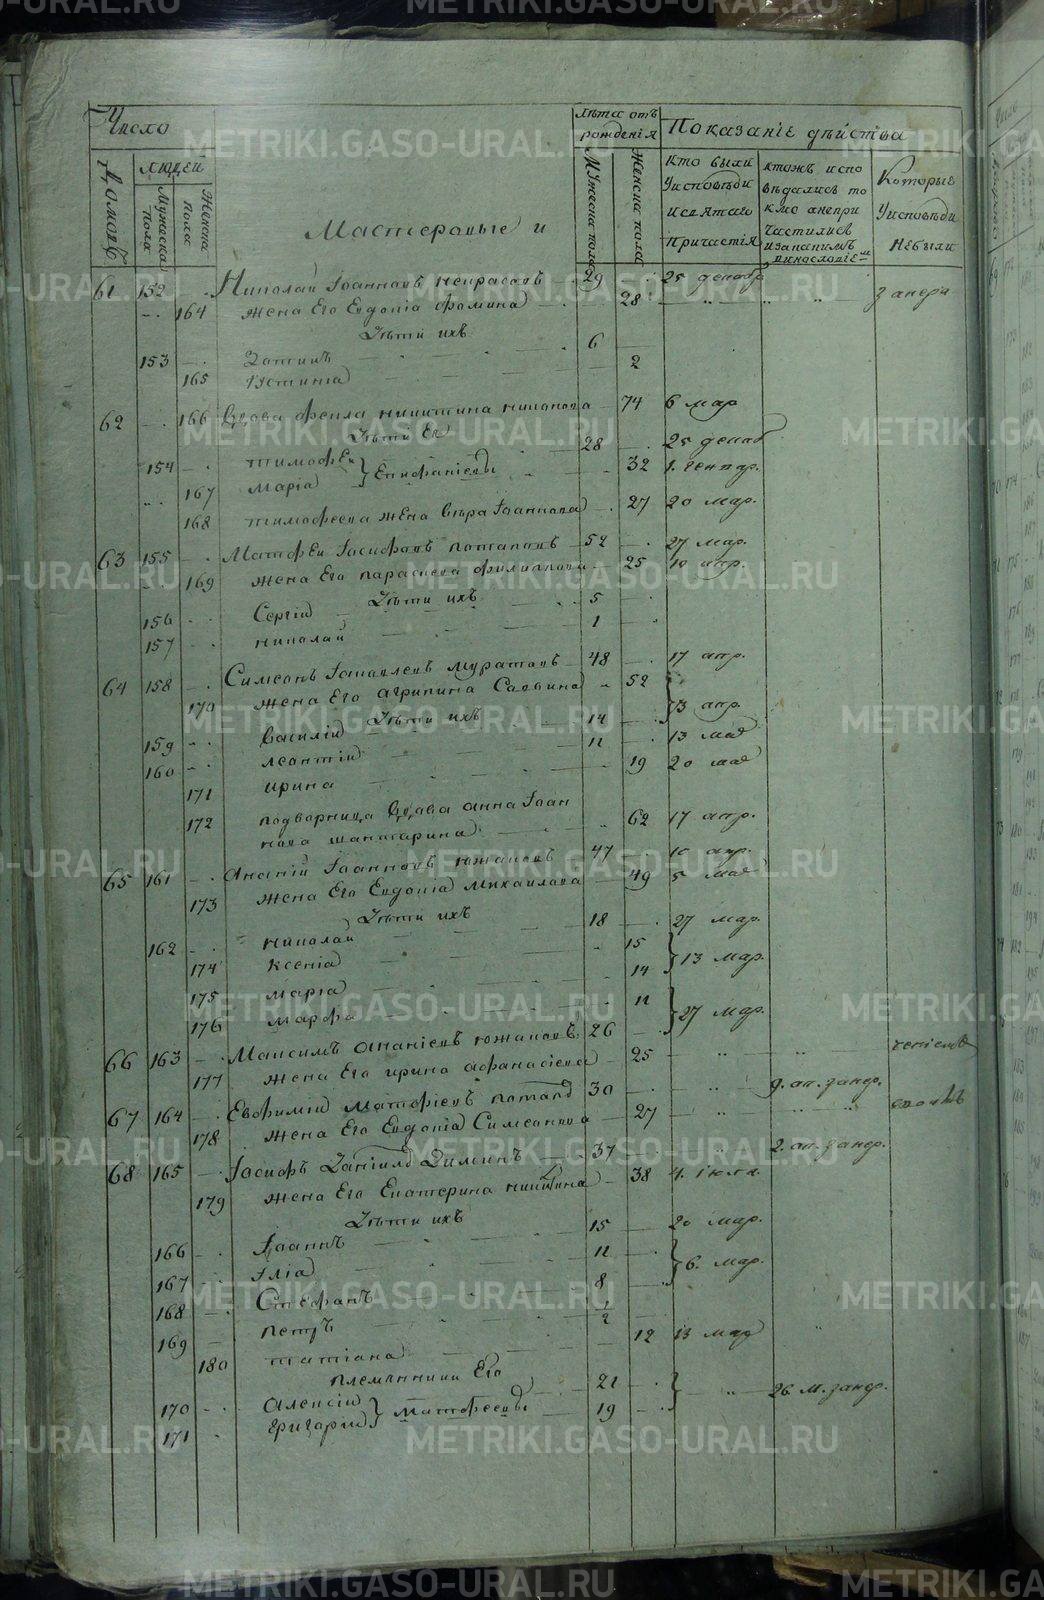 Число
Домовъ
людей
Мужеска пола
Женска пола
Мастеровые и
лѣта отъ рожденія
Мужеска пола
Женска пола
Показаніе дѣйства
кто были
Уисповѣди
исвятаго
причастія
ктожъ испо
вѣдались то
кмо анепри
частились
изакакимъ
винословіемъ
Которые
Уисповѣди
небыли
61 152 Николай Іоанновъ Некрасовъ 29 25 декабр
164 жена Его Евдокія Фомина 28 занерa
Дѣти ихъ
153 6
165 Устинія 2
62 166 Вдова Фекла Никитина 74 6 мар
Дѣти Ея
154 Тимофей 28 25 декаб
167 Марія } Епифаніевы 32 1. гентар.
168 Тимофеева жена вѣра Іоаннова 27 20 мар.
63 155 Матфей Іосифовъ потаповъ 52 27 мар.
169 жена Его параскева филиппова 25 10 апр.
Дѣти ихъ
156 Сергій 5
157 николай 1
64 158 Симеонъ Іаковлевъ муратовъ 48 17 апр.
170 жена Его агрипина Саввина 52
Дѣти ихъ } 3 апр.
159 василій 14
160 леонтій 11 13 маа
171 ирина 19 20 маа
172 подворница вдова анна Іоан
нова 62 17 апр.
65 161 Ананій Іоанновъ южаковъ 47 10 апр.
173 жена Его Евдокія Михаилова 49 5 маа
Дѣти ихъ
162 николай 18 27 мар.
174 ксенія 15
175 марія 14 } 13 мар.
176 марфа 11 } 27 мар.
66 163 Максимъ Ананіевъ южаковъ 26
177 жена Его ирина афанасіева 25
67 164 Евфимій Матфіевъ потапо 30 9. ап. занер.
178 жена Его Евдокія Симеонова 27
68 165 Іосифъ Даніило Диминъ 37 2. ап. занер.
179 жена Его Екатерина никитина 38 4. іюла.
Дѣти ихъ
166 Іоаннъ 15 20 мар.
167 Ілія 11 } 6. мар.
168 Стефанъ 8
169 петръ 1/2
180 татіана 12 13 маа
племянники Его
170 Алексій 21
171 григорій } матфеевы 19 } 26 м. занер.
METRIKI.GASO-URAL.RU